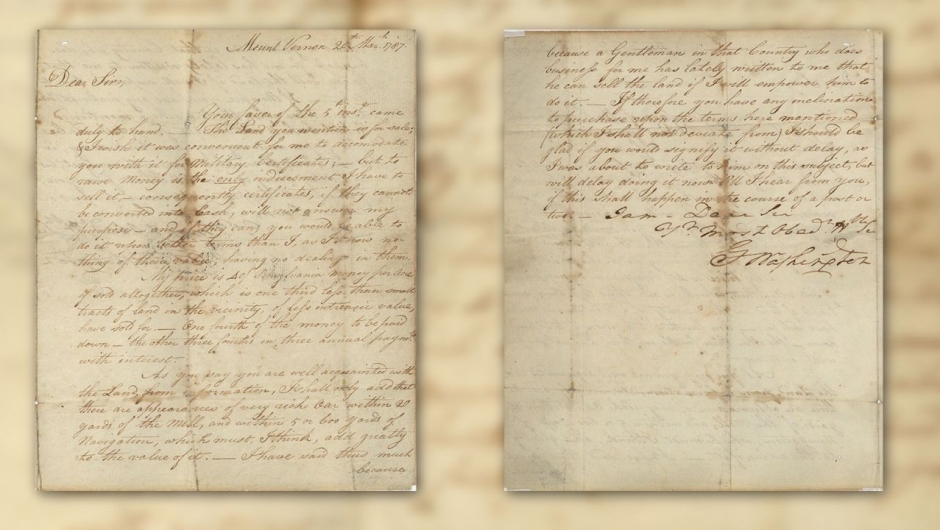 Mount Vernon 20th Mar. 1787.
Dear Sir,
Your favor of the 5th inst. came
duly to hand. The Land you mention is for sale;
& I wish it was convenient for me to accomodate
you with it for Military Certificates; — but to
raise money is the only inducement I have to
sell it, — consequently certificates, if they cannot
be converted into Cash, will not answer my
purpose — and if they can, you would be able to
do it upon better terms than I, as I know no
thing of their value, having no dealings in them.
My price is 40/ Pensylvania money pr Acre
if sold altogether, which is one third less than small
tracts of Land in the vicinity, of less intrinsic value,
have sold for. — One fourth of the money to be paid
down — the other three fourths in three annual paymts.
with interest. —
As you say you are well acquainted with
the Land, from information, I shall only add that
there are appearances of very rich Oar within 20
yards of the Mill, and within 5 or 600 yards of
Navigation, which must, I think, add greatly
to the value of it. — I have said thus much
because
because a Gentleman in that Country who does
business for me has lately written to me that
he can sell the land if I will empower him to
do it. — If therefore you have any inclination
to purchase upon the terms here mentioned
(which I shall not deviate from) I should be
glad if you would signify it without delay, as
I was about to write to him on this subject, but
will delay doing it now till I hear from you,
if this shall happen in the course of a post or
two. — I am — Dear Sir
Yr. most Obedt. Hble Se
G Washington